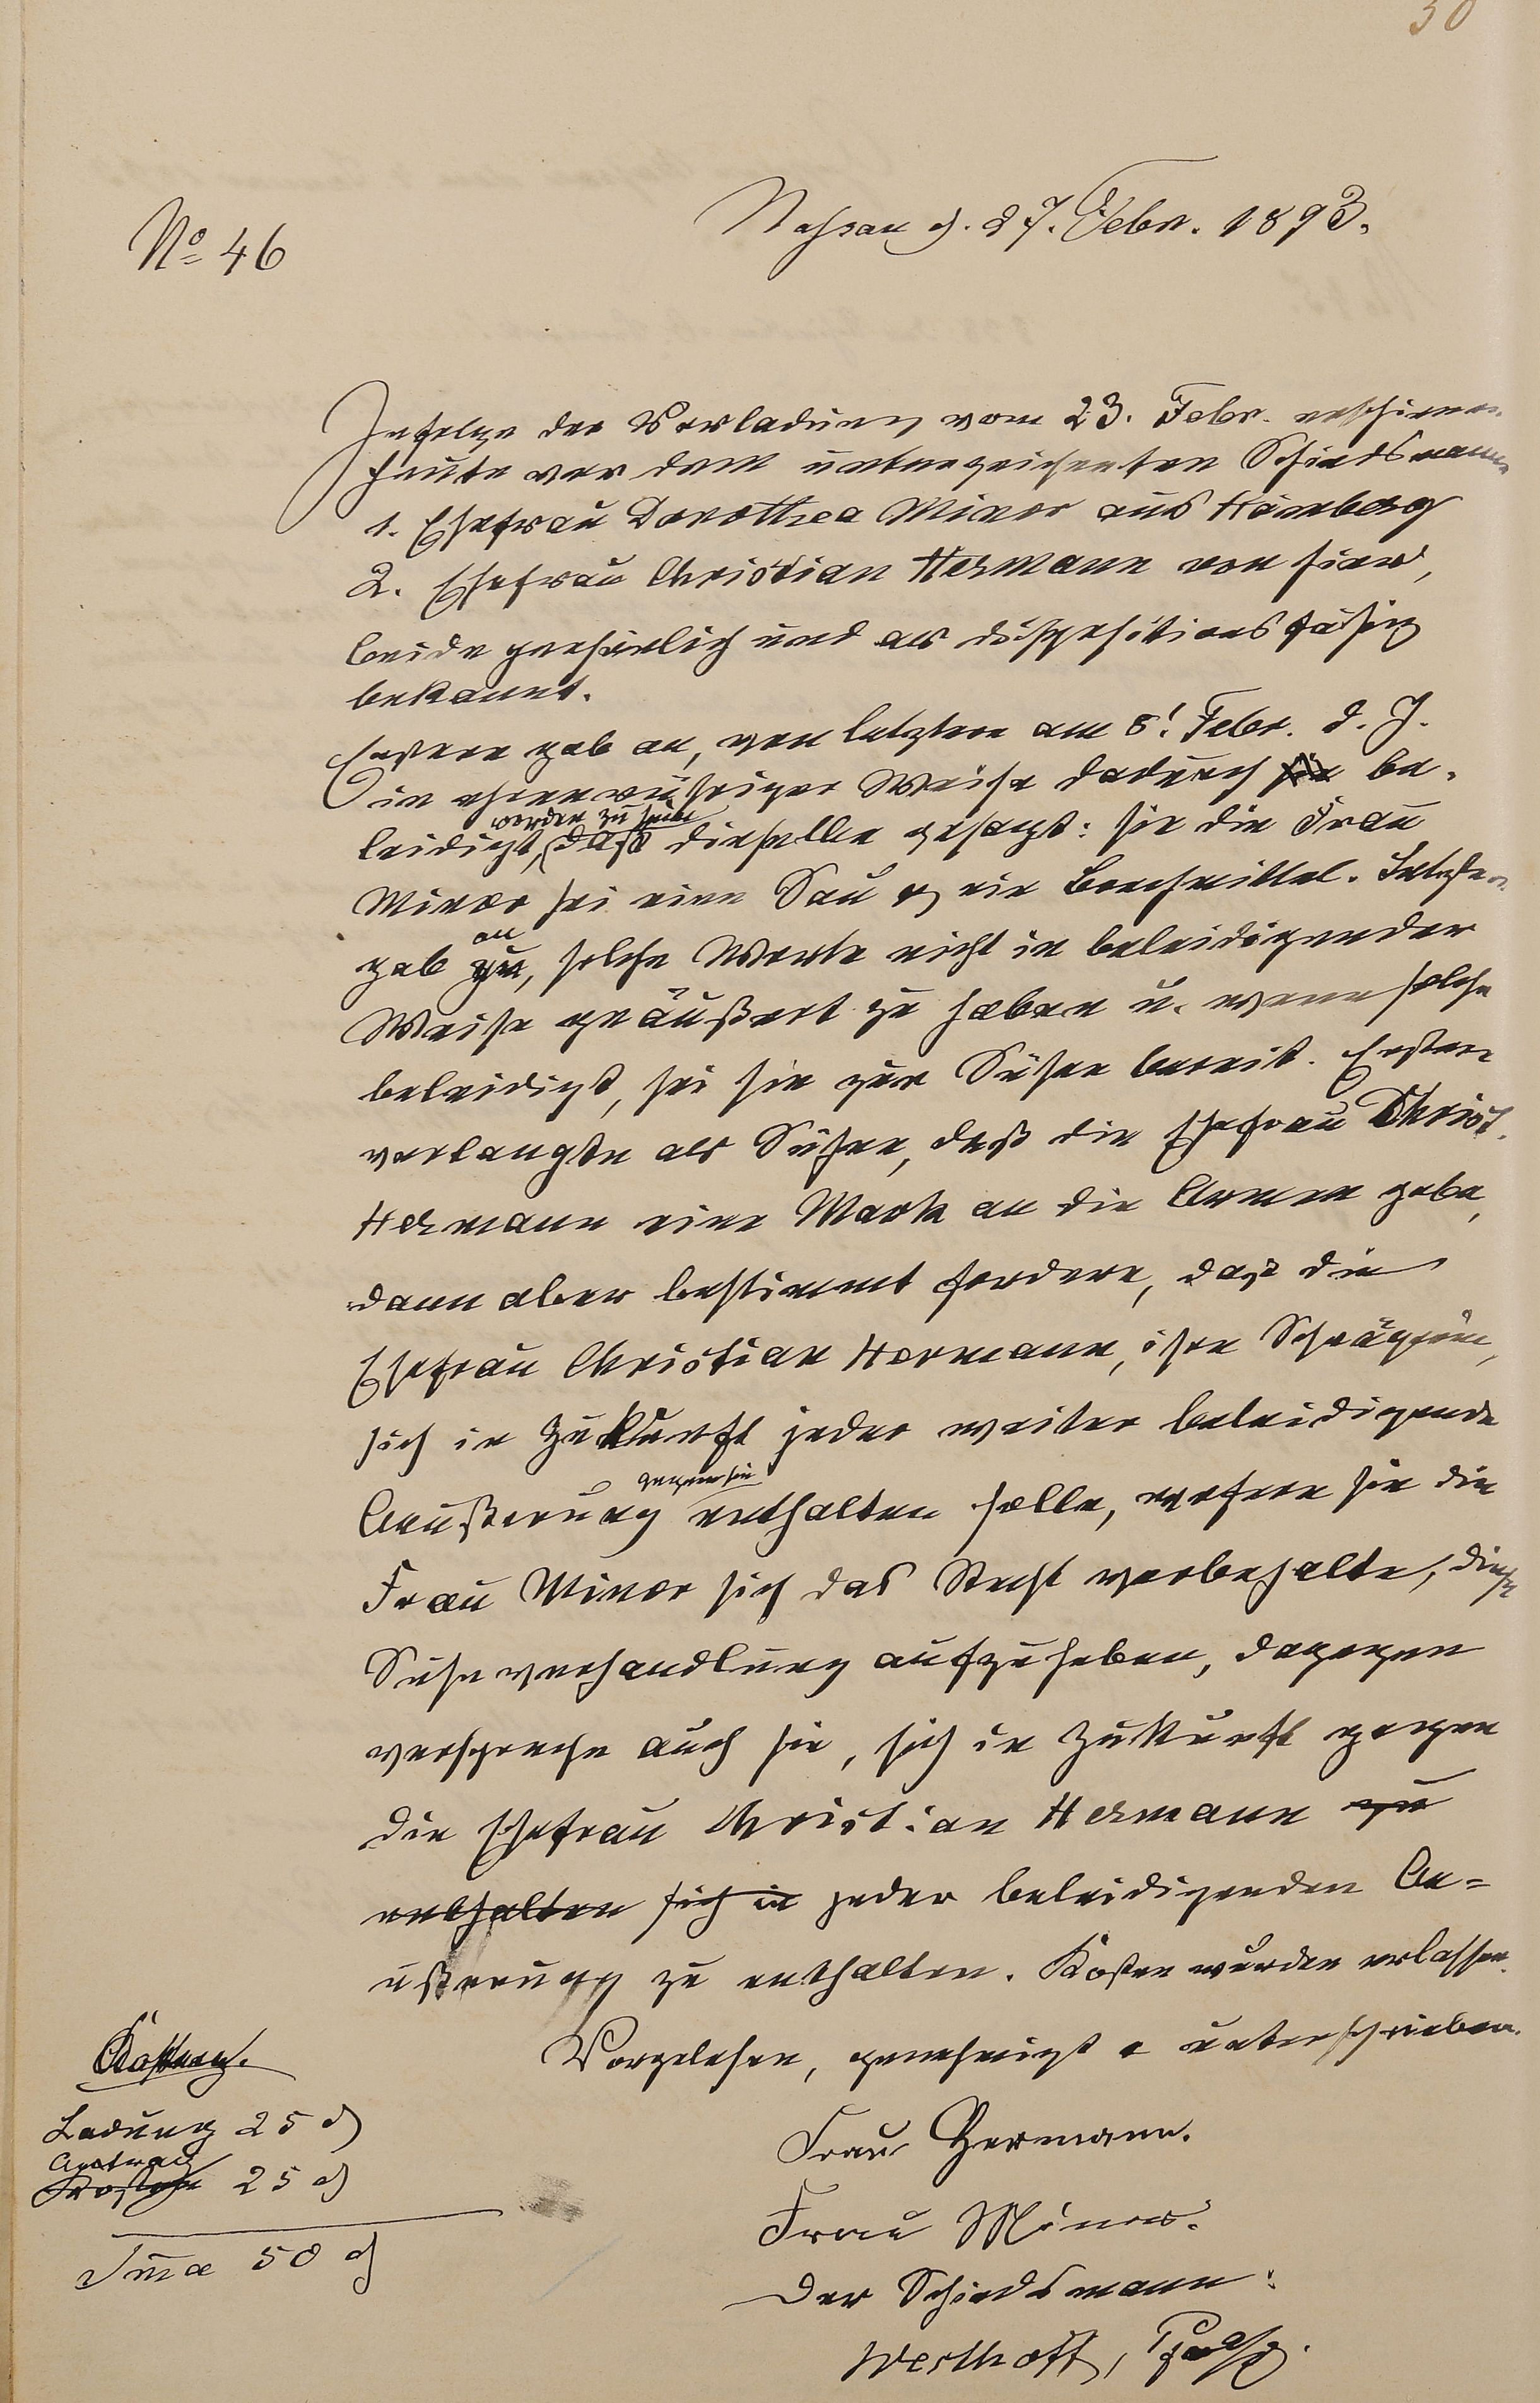 30
No 46
Nassau d. 27. Febr. 1893.
Infolge der Vorladung vom 23. Febr. erschienen
heute vor dem unterzeichneten Schiedsmann
1. Ehefrau Dorothea Minor aus
2. Ehefrau Christian Hermann von hier,
beide persönlich und als dispositionsfähig
bekannt.
Erstere gab an, von letztere am 8. Febr. d. J.
in ehrenrühriger Weise dadurch sie be-
worden zu sein
leidigt, daß dieselbe gesagt: sie die Frau
Minor sei eine Sau & ein Brechmittel. Letztere
an
gab zu, solche Worte nicht in beleidigender
Weise geäußert zu haben u. wenn solche
beleidigt, sei sie zur Sühne bereit. Erstere
verlangte als Sühne, daß die Ehefrau Christ.
Hermann eine Mark an die Armen gebe,
dann aber bestimmt fordere, daß die
Ehefrau Christian Hermann, ihre Schwägerin,
sich in Zukunft jeder weiter beleidigende
gegen sie
Aeußerung enthalten solle, wofern sie die
Frau Minor sich das Recht vorbehalte, diese
Sühneverhandlung aufzuheben, dagegen
verspreche auch sie, sich in Zukunft gegen
die Ehefrau Christian Hermann zu
enthalten sich in jeder beleidigenden Ae-
ußerung zu enthalten. Kosten wurden erlassen.
Vorgelesen, genehmigt & unterschrieben.
Frau Hermann.
Frau Minor.
Der Schiedsmann:
Westhoff,
Ladung 25 ₰
Antrag
Kosten 25 ₰
Sma 50 ₰